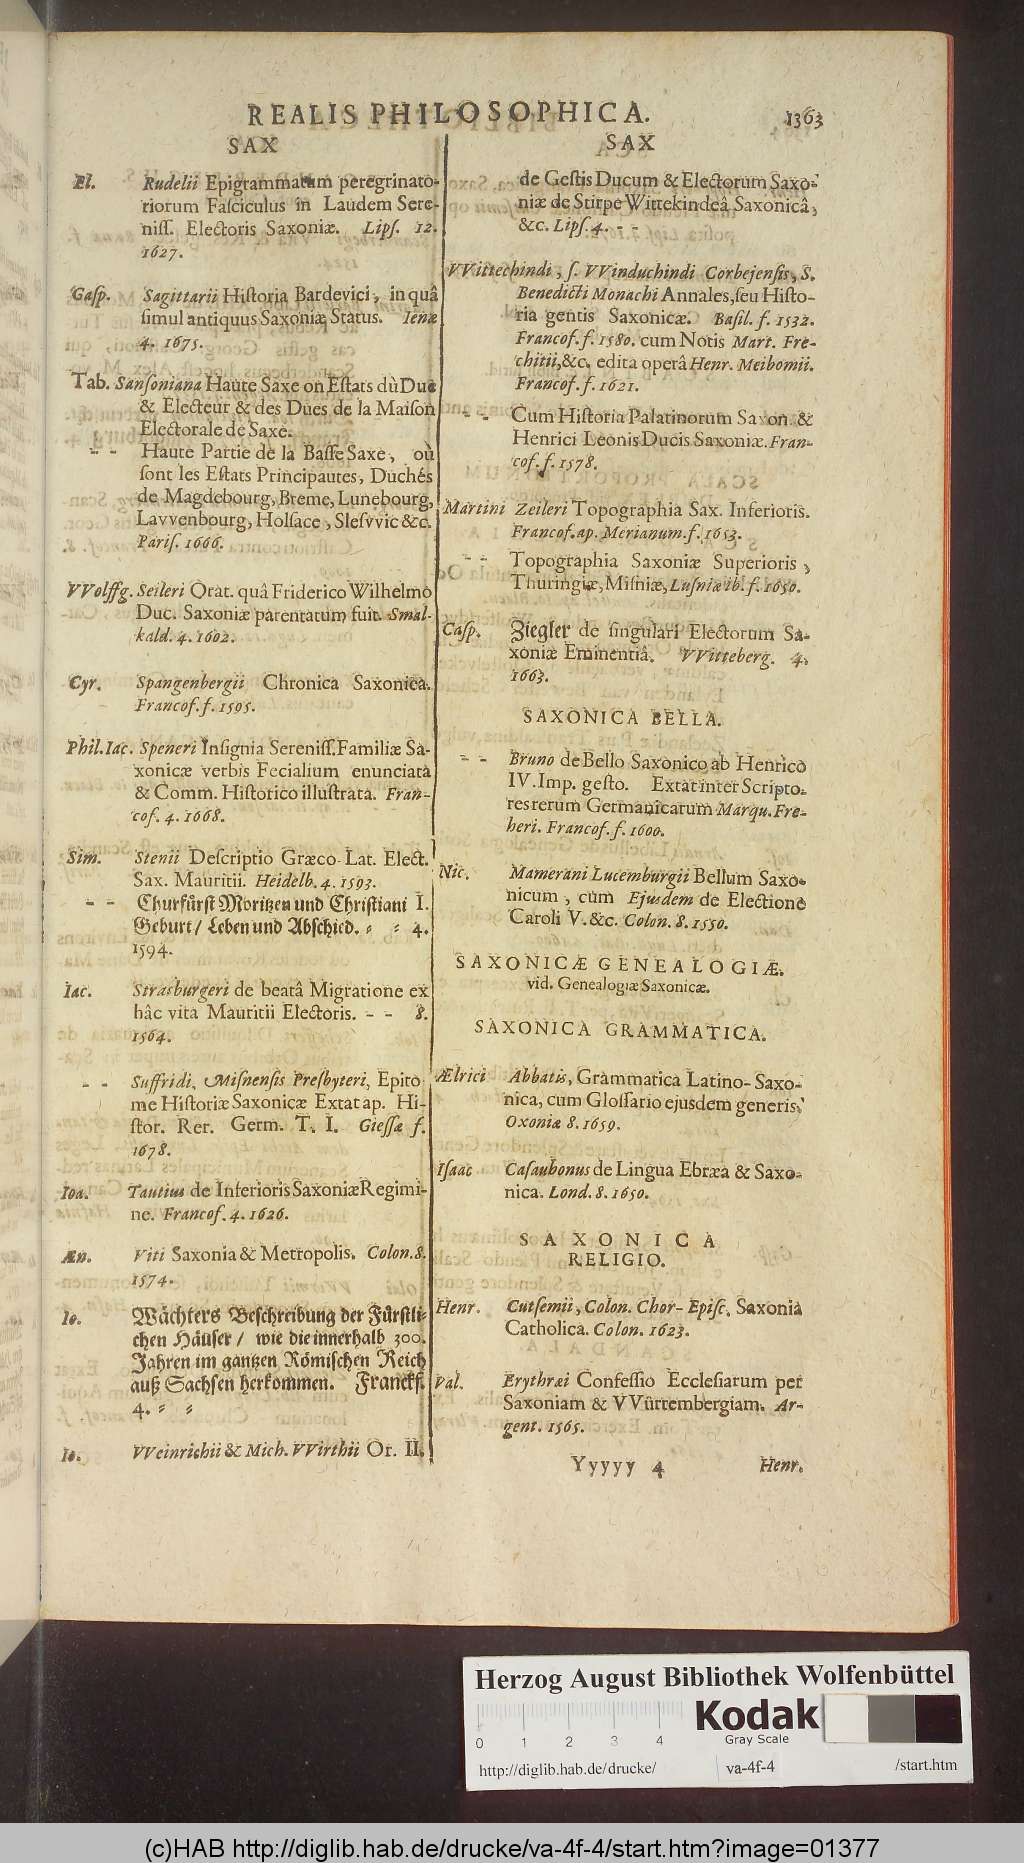 REALIS PHILOSOPHICA. 1363
SAX
El. Rudelii Epigrammatum peregrinato-
riorum Fasciculus in Laudem Sere-
niss. Electoris Saxoniæ. Lips. 12.
1627.
Casp. Sagittarii Historia Bardevici, in quâ
simul antiquus Saxoniæ Status. Ienæ
4. 1675.
Tab. Sansoniana Haute Saxe on Estats dù Duc
& Electeur & des Dues de la Maison
Electorale de Saxe.
- - Haute Partie de la Basse Saxe, où
sont les Estats Principautes, Duchés
de Magdebourg, Breme, Lunebourg,
Lavvenbourg, Holsace, Slesvvic &c.
Paris. 1666.
VVolffg. Seileri Orat. quâ Friderico Wilhelmo
Duc. Saxoniæ parentatum fuit. Smal-
kald. 4. 1602.
Cyr. Spangenbergii Chronica Saxonica.
Francof. f. 1595.
Phil. Iac. Speneri Insignia Sereniss. Familiæ Sa-
xonicæ verbis Fecialium enunciata
& Comm. Historico illustrata. Fran-
cof. 4. 1668.
Sim. Stenii Descriptio Græco-Lat. Elect.
Sax. Mauritii. Heidelb. 4. 1593.
- - Churfürst Moritzen und Christiani I.
Geburt/ Leben und Abschied. - - 4.
1594.
Iac. Strasburgeri de beatâ Migratione ex
hâc vita Mauritii Electoris. - - 8.
1564.
- - Suffridi, Misnensis Presbyteri, Epito
me Historiæ Saxonicæ Extat ap. Hi-
stor. Rer. Germ. T. I. Giessæ f.
1678.
Ioa. Tautius de Inferioris Saxoniæ Regimi-
ne. Francof. 4. 1626.
Æn. Viti Saxonia & Metropolis. Colon. 8.
1574.
Io. Wächters Beschreibung der Fürstli-
chen Häuser/ wie die innerhalb 300.
Jahren im gantzen Römischen Reich
auß Sachsen herkommen. Franckf.
4. - -
Io. VVeinrichii & Mich. VVirthii Or. II.
SAX
de Gestis Ducum & Electorum Saxo-
niæ de Stirpe Wittekindeâ Saxonicâ,
&c. Lips. 4. - -
VVittechindi, s. VVinduchindi Corbejensis, S.
Benedicti Monachi Annales, seu Histo-
ria gentis Saxonicæ. Basil. f. 1532.
Francof. f. 1580. cum Notis Mart. Fre-
chitii, &c. edita operâ Henr. Meibomii.
Francof. f. 1621.
- - Cum Historia Palatinorum Saxon. &
Henrici Leonis Ducis Saxoniæ. Fran-
cof. f. 1578.
Martini Zeileri Topographia Sax. Inferioris.
Francof. ap. Merianum. f. 1653.
- - Topographia Saxoniæ Superioris,
Thuringiæ, Misniæ, Lusniæ ib. f. 1650.
Casp. Ziegler de singulari Electorum Sa-
xoniæ Eminentiâ. VVitteberg. 4.
1663.
SAXONICA BELLA.
- - Bruno de Bello Saxonico ab Henrico
IV. Imp. gesto. Extat inter Scripto-
res rerum Germanicarum Marqu. Fre-
heri. Francof. f. 1600.
Nic. Mamerani Lucemburgii Bellum Saxo-
nicum, cum Ejusdem de Electione
Caroli V. &c. Colon. 8. 1550.
SAXONICÆ GENEALOGIÆ.
vid. Genealogiæ Saxonicæ.
SAXONICA GRAMMATICA.
Ælrici Abbatis, Grammatica Latino-Saxo-
nica, cum Glossario ejusdem generis.
Oxoniæ 8. 1659.
Isaac Casaubonus de Lingua Ebræa & Saxo-
nica. Lond. 8. 1650.
SAXONICA
RELIGIO.
Henr. Cutsemii, Colon. Chor-Episc. Saxonia
Catholica. Colon. 1623.
Val. Erythræi Confessio Ecclesiarum per
Saxoniam & VVürtembergiam. Ar-
gent. 1565.
Yyyyy 4 Henr.
Herzog August Bibliothek Wolfenbüttel
Kodak
Gray Scale
0 1 2 3 4
http://diglib.hab.de/drucke/ va-4f-4 /start.htm
(c)HAB http://diglib.hab.de/drucke/va-4f-4/start.htm?image=01377